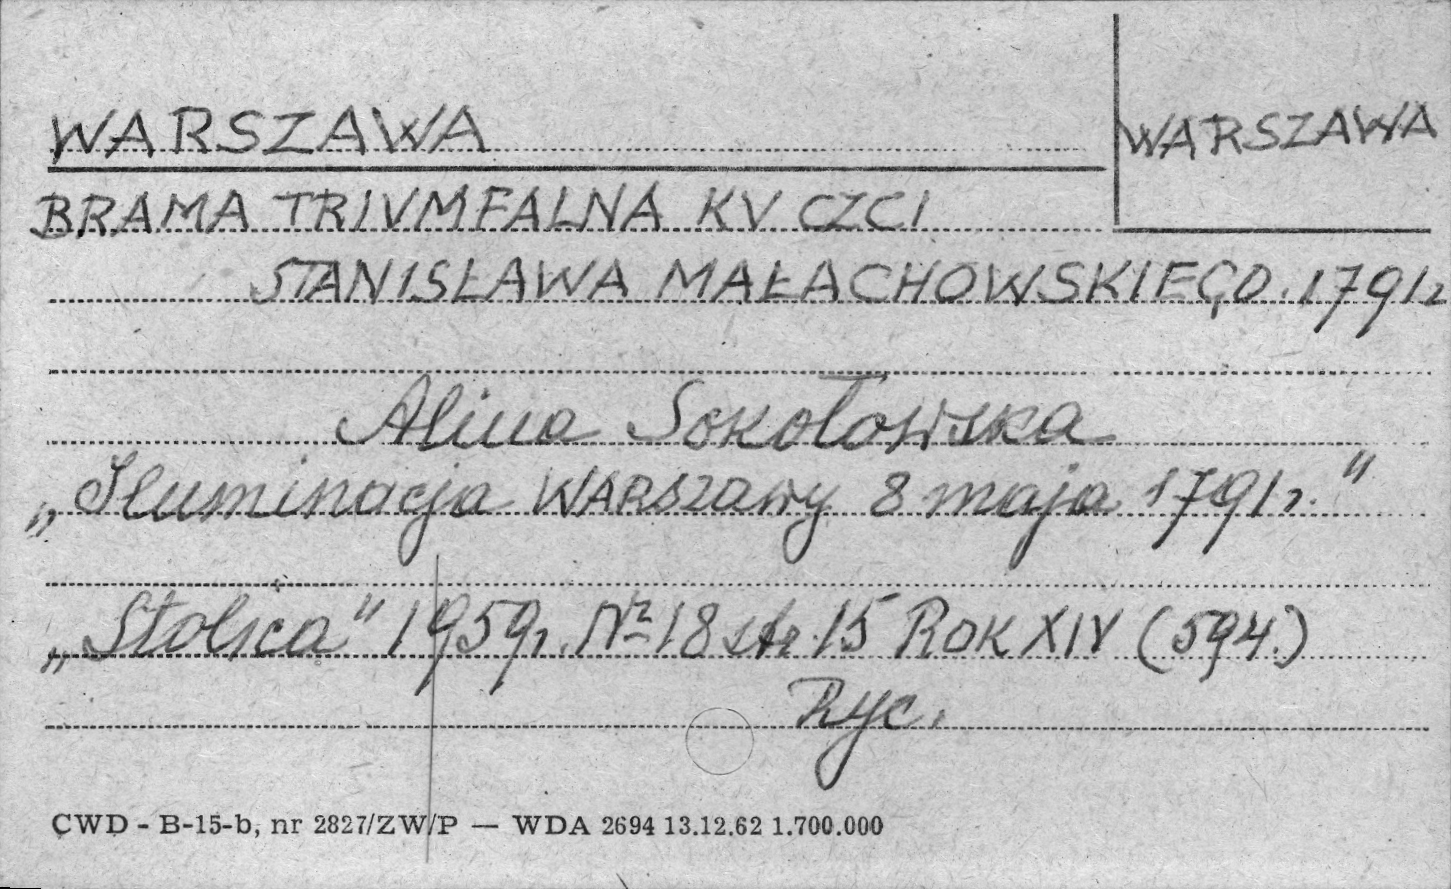 WARSZAWA
WARSZAWA
BRAMA TRIVMFALNA KV CZCI
STANISŁAWA MAŁACHOWSKIEGO. 1791 r
Alina Sokołowska
„Iluminacja WARSZAwy 8 maja 1791 r."
„Stolica" 1959 r. Nr 18 str. 15 ROK XIV (594.)
Ryc.
CWD - B-15-b, nr 2827/ZW/P — WDA 2694 13.12.62 1.700.000